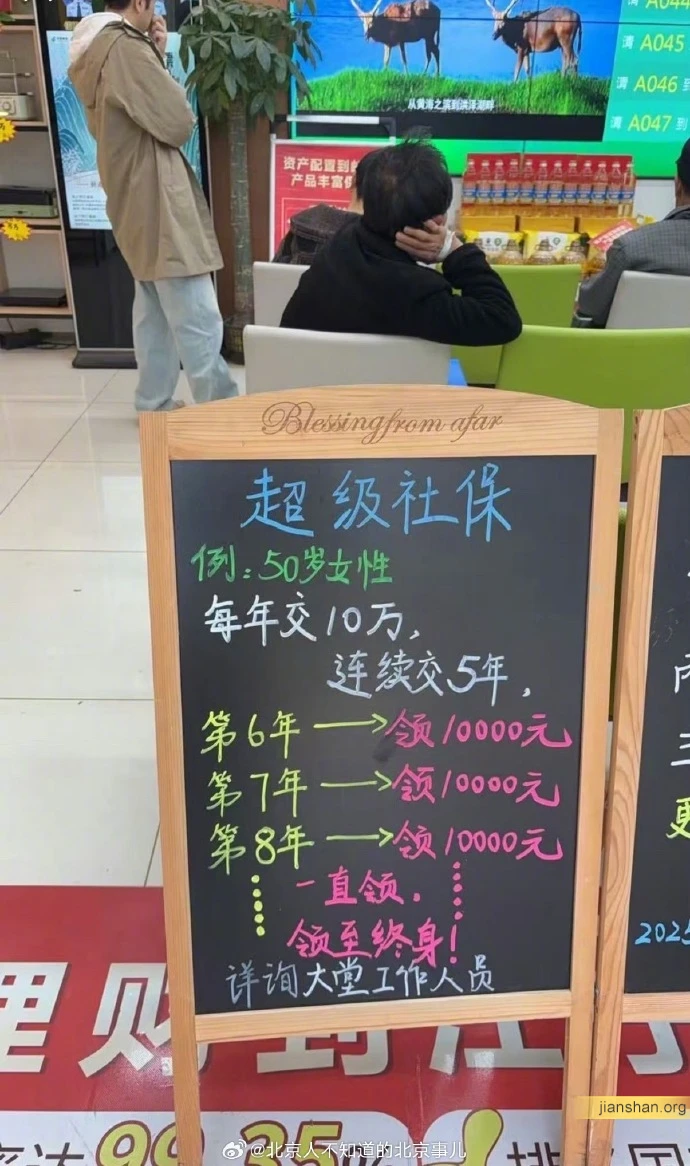 从黄海之滨到洪泽湖畔
A044
请 A045
请 A046 到
请 A047 到
资产配置到邮
产品丰富保
Blessing from afar
超级社保
例：50岁女性
每年交10万，
连续交5年，
第6年→领10000元
第7年→领10000元
第8年→领10000元
一直领，
领至终身！
详询大堂工作人员
三
更
2025
理财到江
99.35%
@北京人不知道的北京事儿
jianshan.org